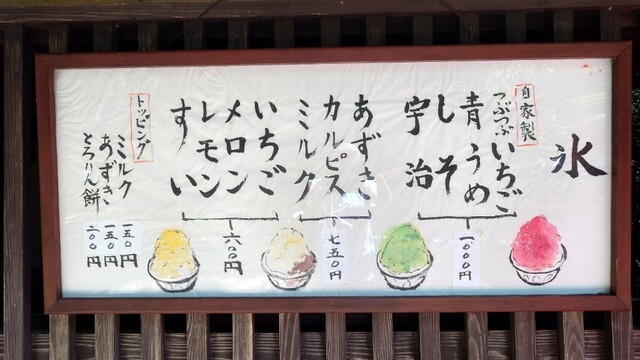 氷
自家製
つぶつぶいちご
青うめ
しそ
宇治
一〇〇〇円
あずき
カルピス
ミルク
七五〇円
いちご
メロン
レモン
すい
六〇〇円
トッピング
ミルク 一五〇円
あずき 一五〇円
とろりん餅 二〇〇円